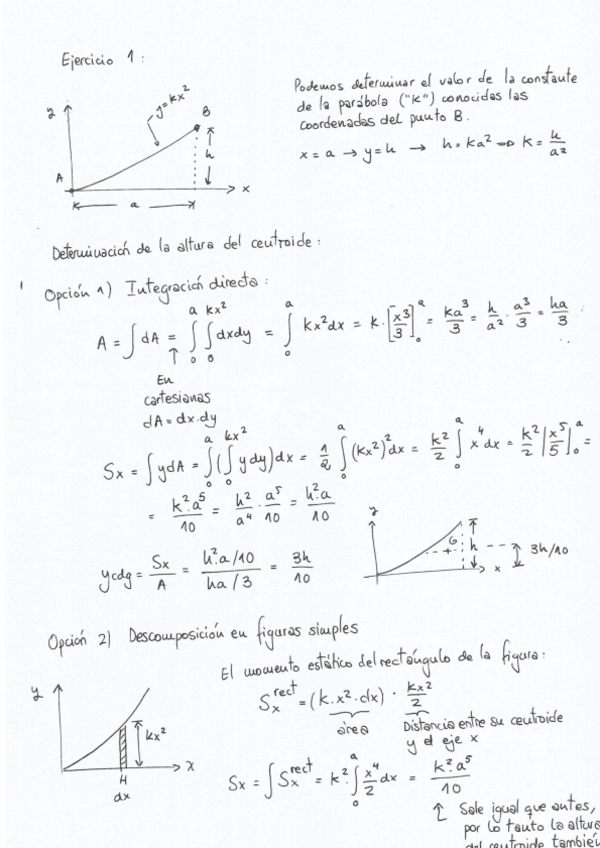 Ejercicio 1:
y
y=kx²
B
h
A
x
a
Podemos determinar el valor de la constante
de la parábola ("k") conocidas las
coordenadas del punto B.
x = a → y = h → h = ka² ⇒ k = h/a²
Determinación de la altura del centroide:
Opción 1) Integración directa:
A = ∫dA = ∫₀ᵃ ∫₀^(kx²) dxdy = ∫₀ᵃ kx²dx = k·[x³/3]₀ᵃ = ka³/3 = h/a² · a³/3 = ha/3
↑
En
cartesianas
dA = dx.dy
Sx = ∫ydA = ∫₀ᵃ(∫₀^(kx²) ydy)dx = 1/2 ∫₀ᵃ (kx²)²dx = k²/2 ∫₀ᵃ x⁴dx = k²/2 |x⁵/5|₀ᵃ =
= k².a⁵/10 = h²/a⁴ · a⁵/10 = h².a/10
ycdg = Sx/A = h².a/10 / ha/3 = 3h/10
y
G
h
3h/10
x
Opción 2) Descomposición en figuras simples
El momento estático del rectángulo de la figura:
Sxʳᵉᶜᵗ = (k.x².dx) · kx²/2
área
Distancia entre su centroide
y el eje x
y
kx²
x
dx
Sx = ∫Sxʳᵉᶜᵗ = k².∫₀ᵃ x⁴/2 dx = k².a⁵/10
↑ Sale igual que antes,
por lo tanto la altura
del centroide también